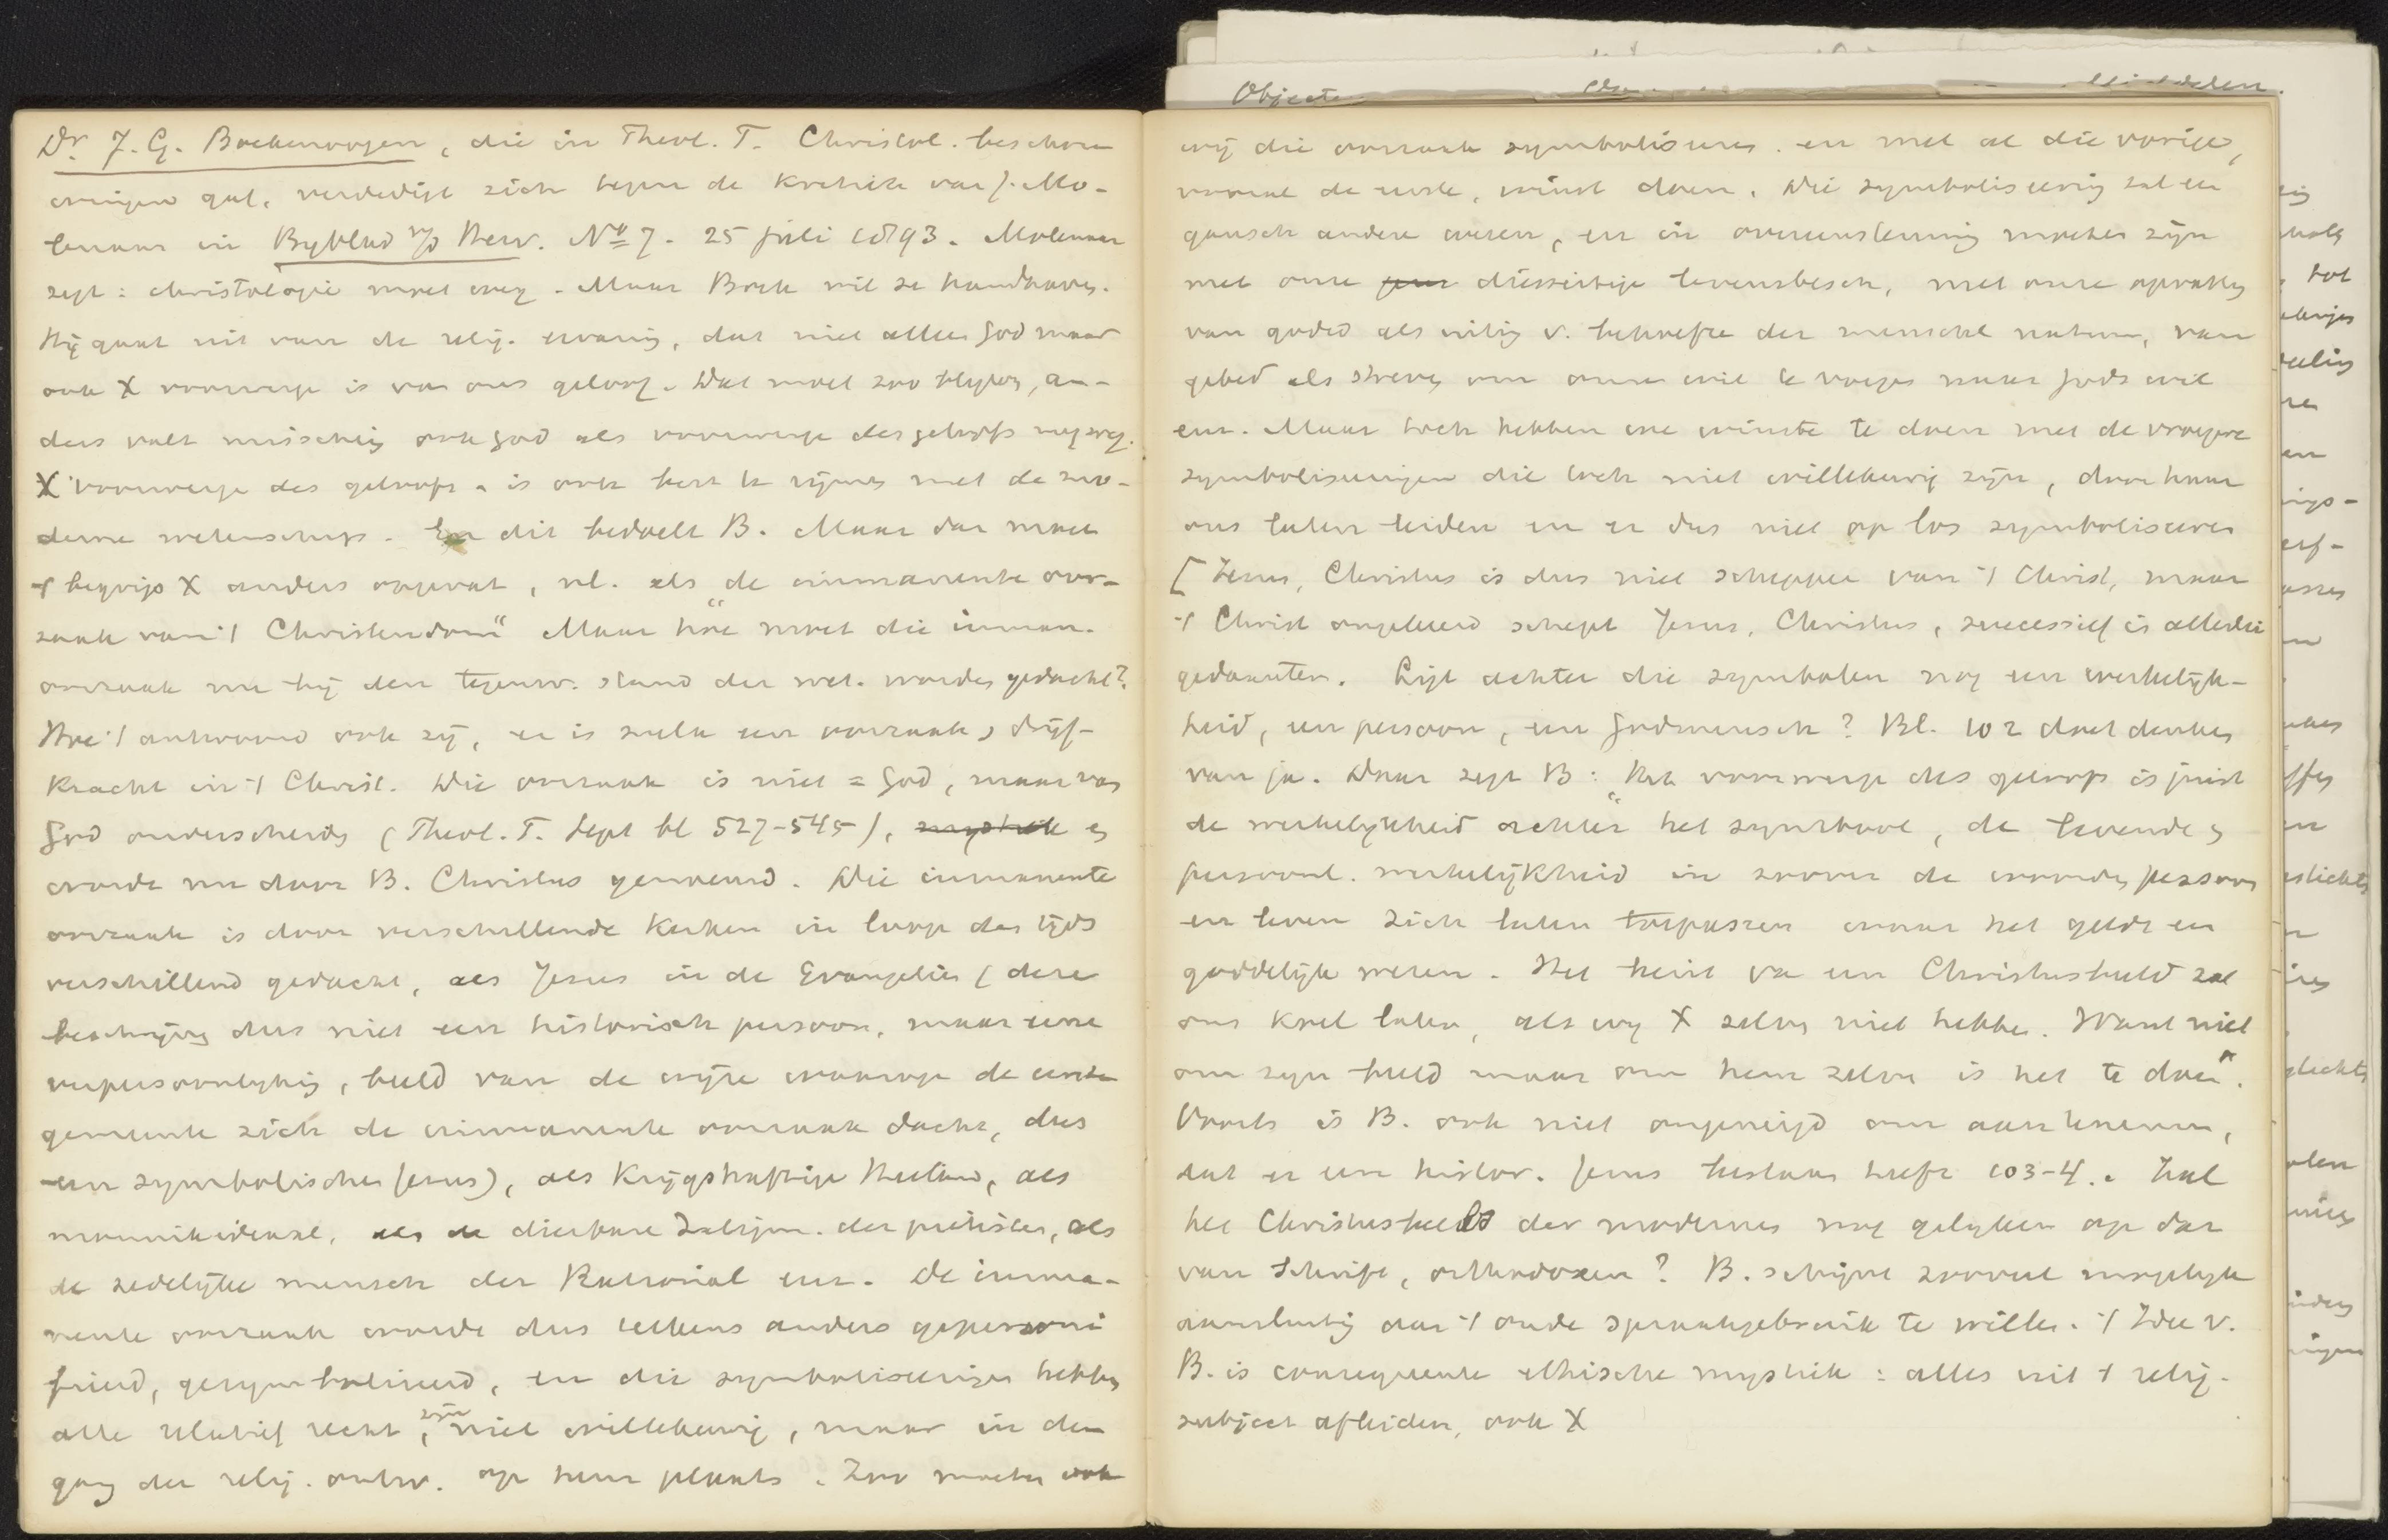 Objecte
Dr. J. G. Boekenoogen, die in Theol. T. Christol. beschou-
wingen gaf, verdedigt zich tegen de kritiek van J. Mo-
lenaar in Byblad v/d Herv. No 7. 25 juli 1893. Molenaar
zegt: christologie moet weg. Maar Boek wil ze handhaven.
Hij gaat uit van de relig. ervaring, dat niet alleen God maar
ook X voorwerp is van ons geloof. Dat moet zoo blijven, an-
ders valt misschien ook God als voorwerp des geloofs nog weg.
X voorwerp des geloofs is ook best te rijmen met de mo-
derne wetenschap. En dit bedoelt B. Maar dan moet
't begrip X anders opgevat, nl. als "de immanente oor-
zaak van 't Christendom" Maar hoe moet die imman.
oorzaak nu bij den tegenw. stand der wet. worden gedacht?
Hoe 't antwoord ook zij, er is zulk een oorzaak, drijf-
kracht in 't Christ. Die oorzaak is niet = God, maar van
God onderscheiden (Theol. T. Sept bl 527-545), mystiek en
wordt nu door B. Christus genoemd. Die immanente
oorzaak is door verschillende kerken in loop des tijds
verschillend gedacht, als Jezus in de Evangeliën (deze
beschrijven dus niet een historisch persoon, maar eene
verpersoonlyking, beeld van de wijze waarop de eerste
gemeente zich de immanente oorzaak dacht, dus
een symbolischen Jezus), als krijgshaftige Heiland, als
monnikideaal, als de dierbare Zaligm. der piëtisten, als
de zedelijke mensch der Rational enz. De imma-
nente oorzaak wordt dus telkens anders gepersoni
fieerd, gesymboliseerd, en die symboliseeringen hebben
alle relatief recht, zijn niet willekeurig, maar in den
gang der relig. ontw. op hun plaats. Zoo moeten ook
wij die oorzaak symboliseeren. en met al die vorige,
vooral de eerste, winst doen. Die symboliseering zal een
gansch andere wezen, en in overeenstemming moeten zijn
met onze diesseitige levensbesch, met onze opvatting
van godsd als uiting v. behoefte der menschel natuur, van
gebed als streven om onzen wil te voegen naar Gods wil
enz. Maar toch hebben we winste te doen met de vroegere
symboliseeringen die toch niet willekeurig zijn, door haar
ons laten leiden en er dus niet op los symboliseeren
[Jezus, Christus is dus niet schepper van 't Christ, maar
't Christ omgekeerd schept Jezus, Christus, successief is allerlei
gedaanten. Ligt achter die symbolen nog een werkelijk-
heid, een persoon, een Godmensch? Bl. 102 doet denken
van ja. Daar zegt B: "het voorwerp des geloofs is juist
de werkelykheid achter het symbool, de levende en
persoonl. werkelijkheid in zoover de woorden persoon
en leven zich laten toepassen waar het geldt een
goddelijk wezen. Het bezit van een Christusbeeld zal
ons koel laten, als wy X zelven niet hebben. Want niet
om zijn beeld maar om hem zelven is het te doen".
Voorts is B. ook niet ongeneigd om aan te nemen,
dat er een histor. Jezus bestaan heeft 103-4. Zal
het Christusbeeld der modernen nog gelijken op dat
van Schrift, orthodoxen? B. schijnt zooveel mogelyk
aansluiting aan 't oude spraakgebruik te willen. 't Idee v.
B. is consequente ethische mystiek: alles uit 't relig.
subject afleiden, ook X